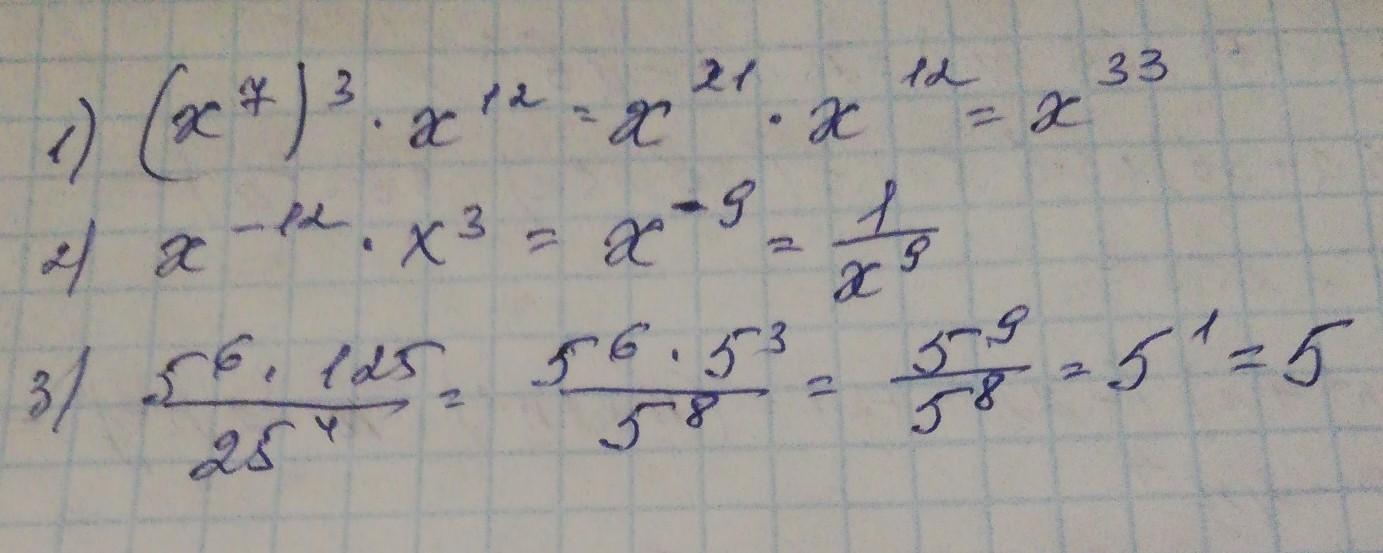 1) (x⁷)³ · x¹² = x²¹ · x¹² = x³³
2) x⁻¹² · x³ = x⁻⁹ = 1/x⁹
3) 5⁶ · 125 / 25⁴ = 5⁶ · 5³ / 5⁸ = 5⁹ / 5⁸ = 5¹ = 5